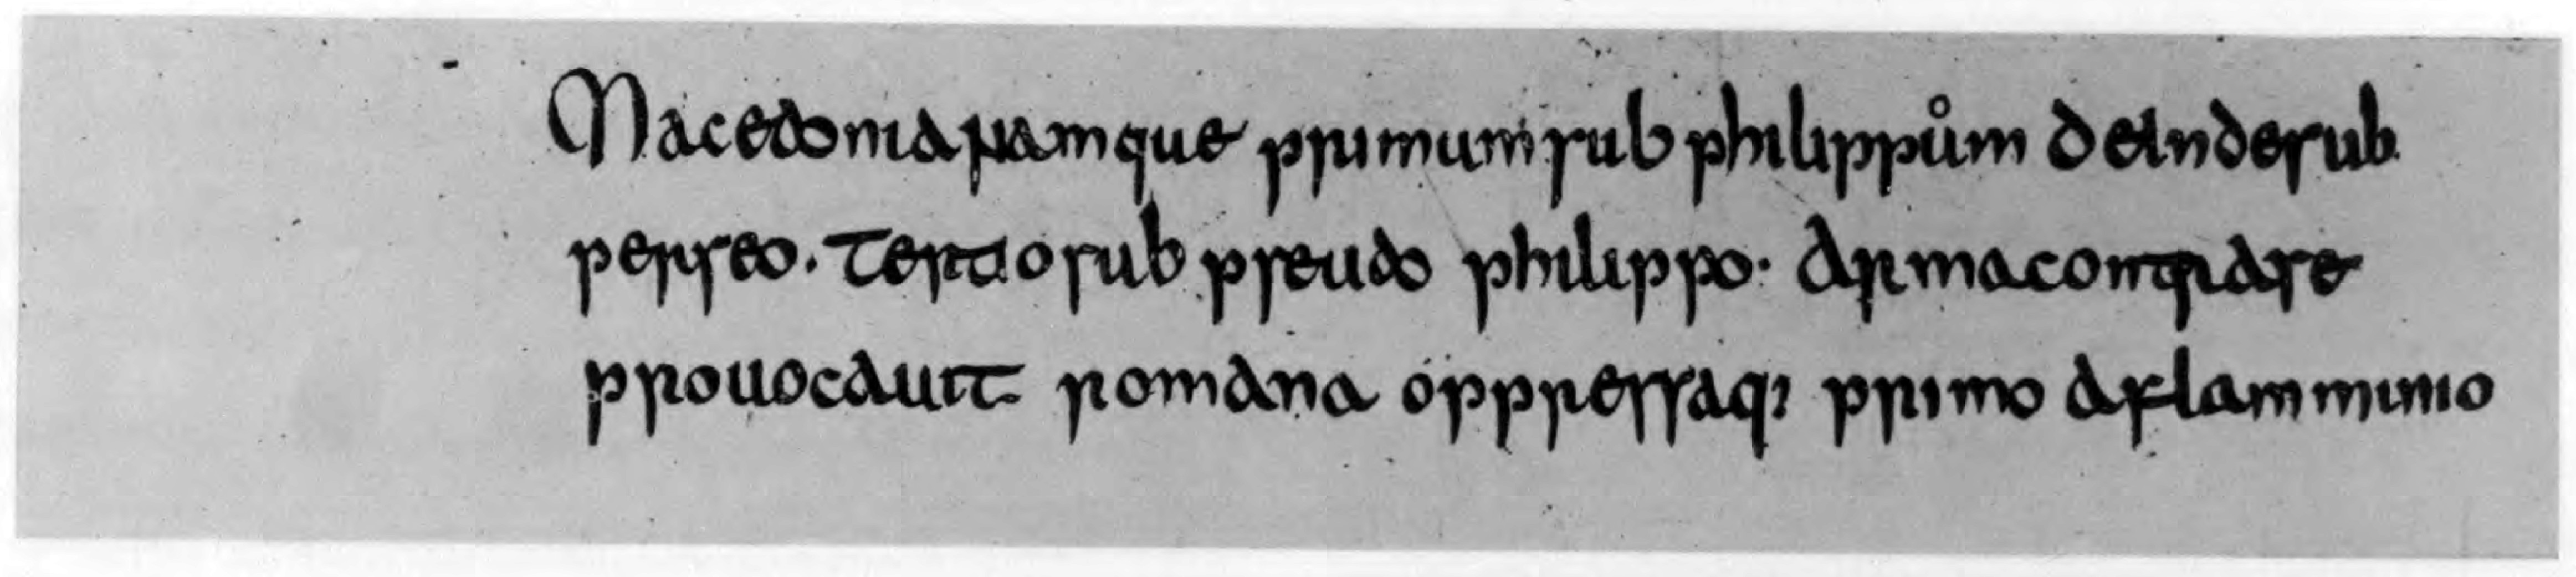 Macedonia namque primum sub philippům deinde sub
perseo. Tertio sub pseudo philippo. Arma
prouocauit romana oppressaq; primo a flamminio